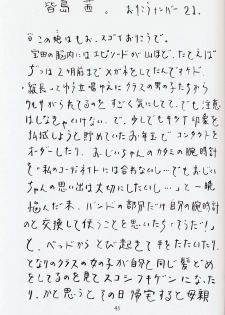 皆島 茜。 おりこうナンバー 21.
この娘はもお、スゴイおりこうで。
宝田の脳内にはエピソードが山ほど。たとえば
2ヶ月前までメガネをしてたんですケド、
・級長、てゆう立場サんにクラスの男の子たちから
クルサがられてるのをすごく気にしてて、でも注意
はしなきゃいけない、で、少しでもキツイ印象を
払拭しようと貯めていたお年玉でコンタクトを
オーダーしたり、おじいちゃんのカタミの腕時計
を「私のコーディネイトには合わないし…でもおじい
ちゃんの思い出は大切にしたいし…」と一晩
悩んだ末、バンドの部分だけ自分の腕時計
のと交換して使うことを思いたち「こうだ!」
と、ベッドからとび起きて手をたたいたり、
となりのクラスの女の子が自分と同じ髪どめ
をしてるのを見てスコシフキゲンになった
り。かと思うとその日帰宅すると母親
43